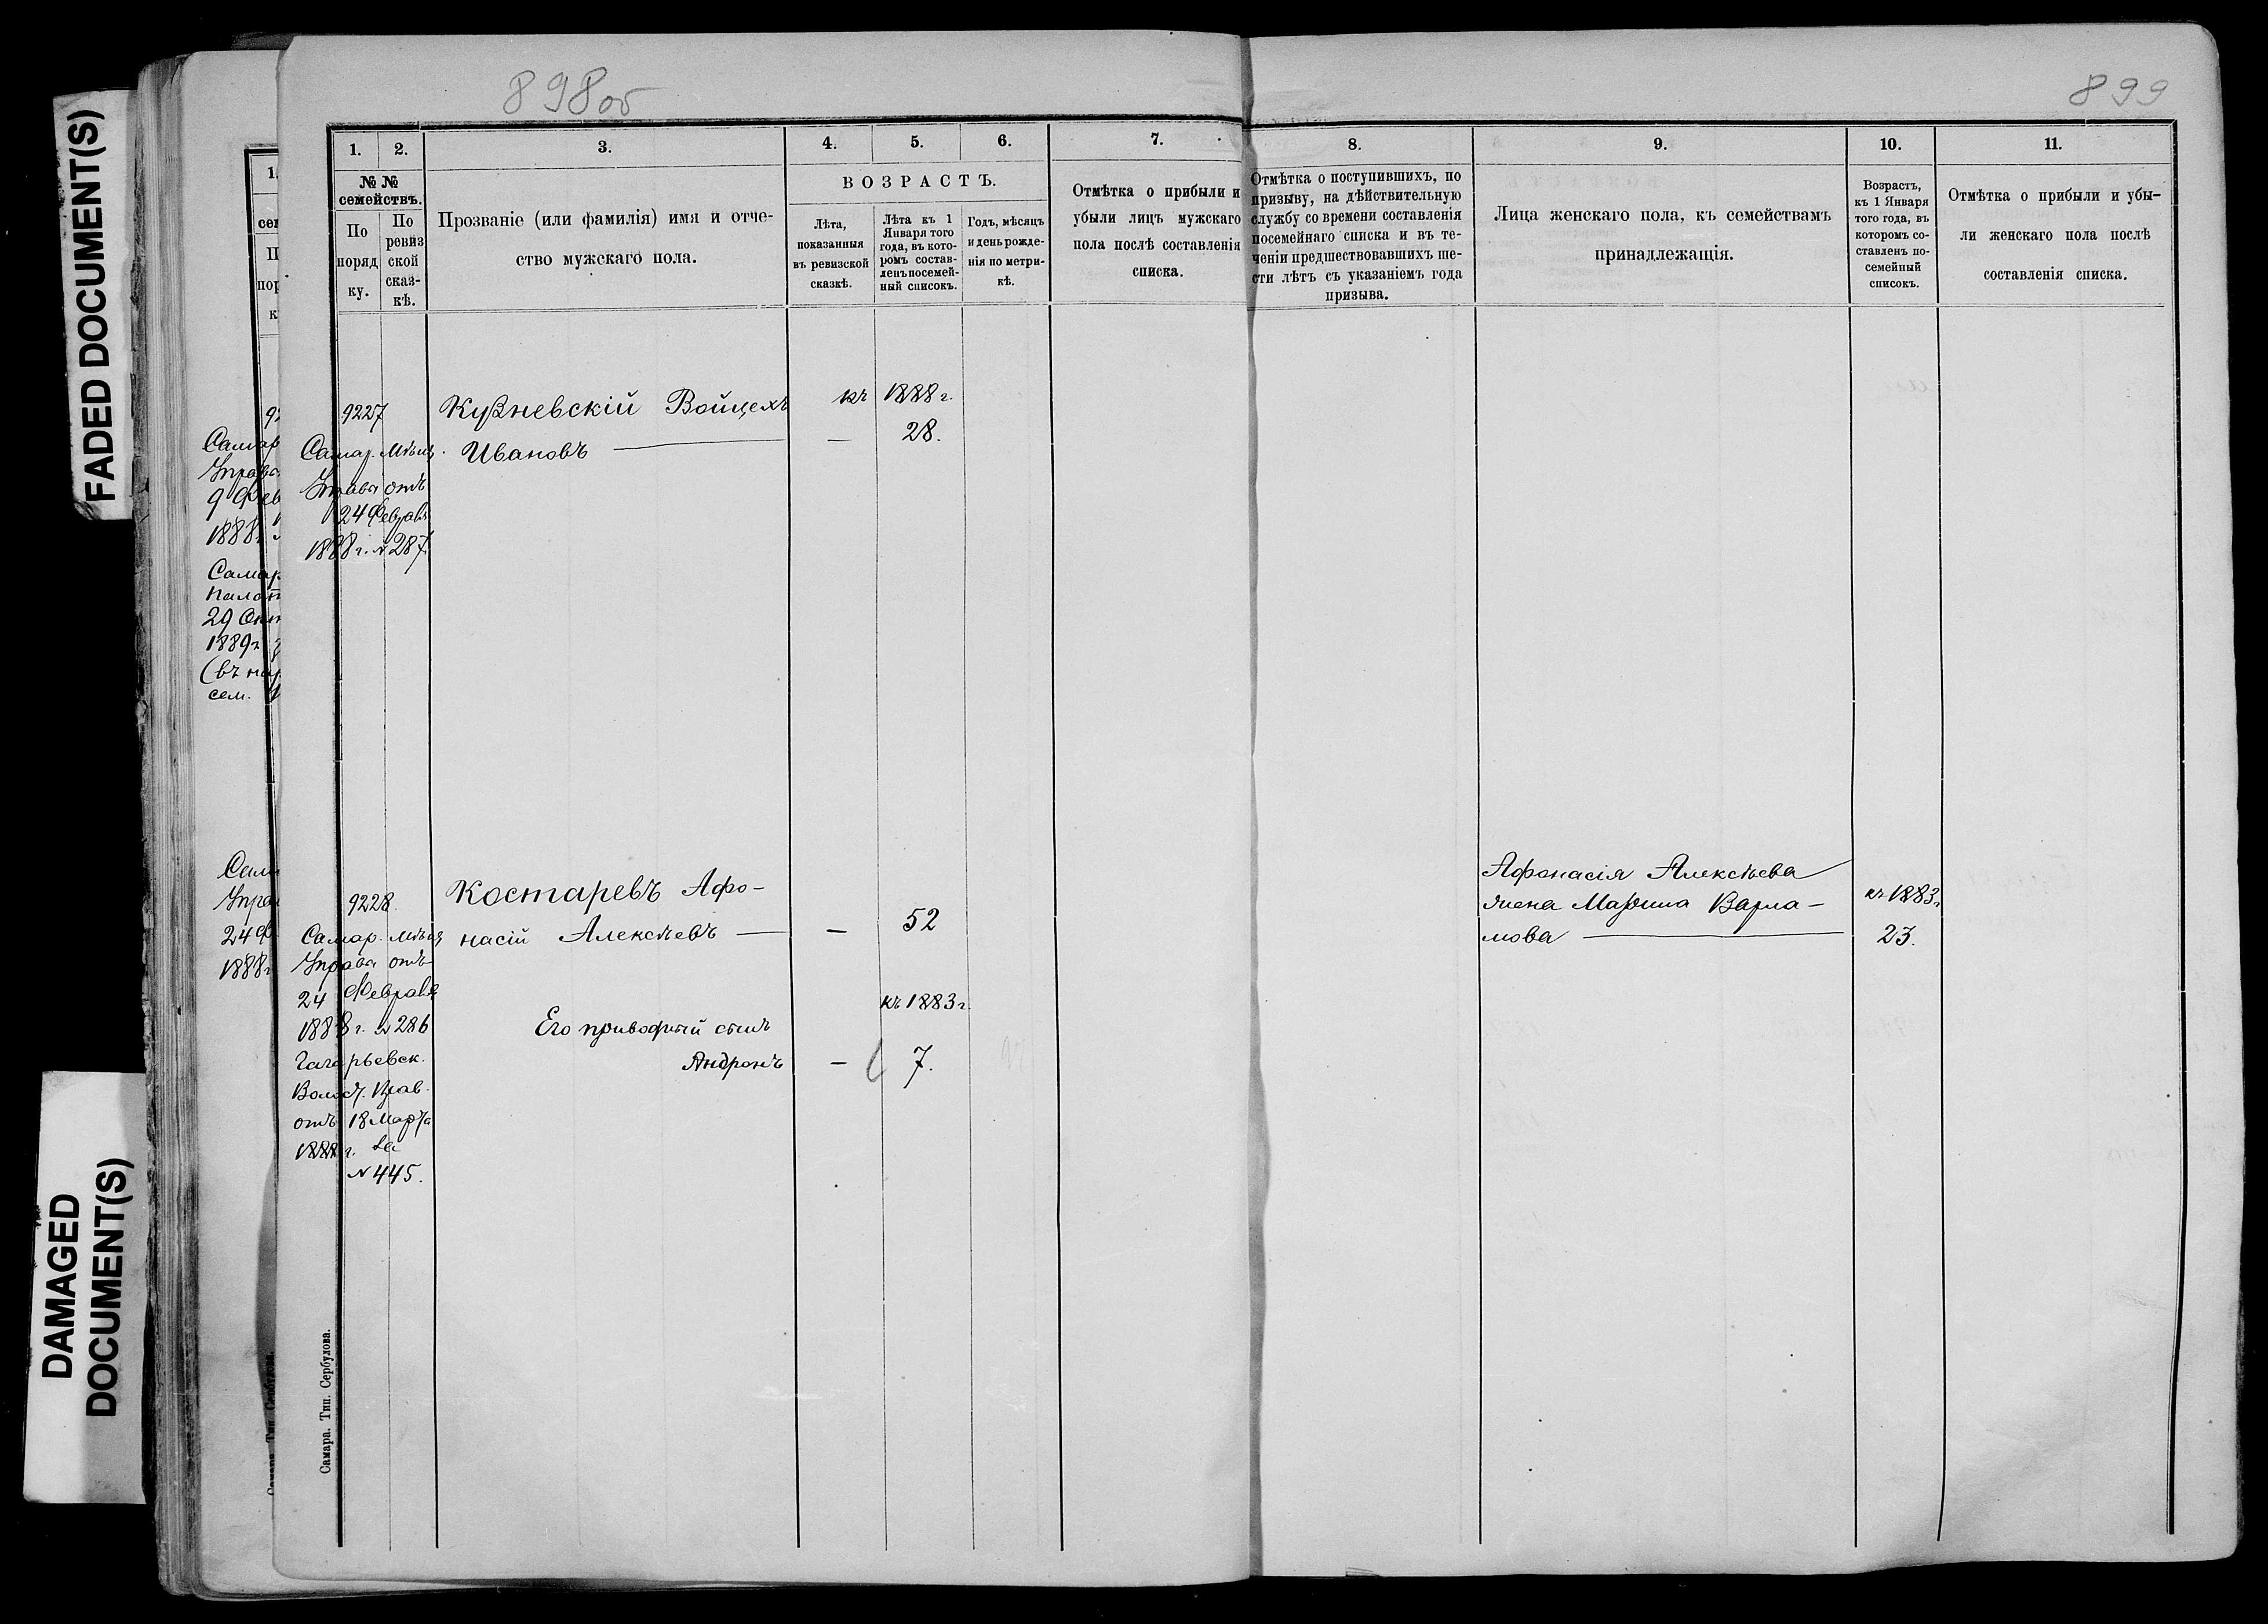 FADED DOCUMENT(S)
DAMAGED
DOCUMENT(S)
898об
899
1.
2.
3.
4.
5.
6.
7.
8.
9.
10.
11.
№ №
семействъ.
По
поряд
ку.
По
ревиз
ской
сказ-
кѣ.
Прозваніе (или фамилія) имя и отче-
ство мужскаго пола.
ВОЗРАСТЪ.
Лѣта,
показанныя
въ ревизской
сказкѣ.
Лѣта къ 1
Января того
года, въ кото-
ромъ состав-
ленъ посемей-
ный списокъ.
Годъ, мѣсяцъ
и день рожде-
нія по метри-
кѣ.
Отмѣтка о прибыли и
убыли лицъ мужскаго
пола послѣ составленія
списка.
Отмѣтка о поступившихъ, по
призыву, на дѣйствительную
службу со времени составленія
посемейнаго списка и въ те-
ченіи предшествовавшихъ ше-
сти лѣтъ съ указаніемъ года
призыва.
Лица женскаго пола, къ семействамъ
принадлежащія.
Возрастъ,
къ 1 Января
того года, въ
которомъ со-
ставленъ по-
семейный
списокъ.
Отмѣтка о прибыли и убы-
ли женскаго пола послѣ
составленія списка.
9227
Войцехъ
къ 1888 г.
Самар. Мѣщ.
Ивановъ —
— 28.
Управа отъ
24 Февраля
1888 г. № 287.
9228.
Костаревъ Афо-
Самар. Мѣщ.
насій Алексѣевъ —
— 52
Управа отъ
24 Февраля
1888 г. № 286
къ 1883 г.
Его приводный сынъ
Андронъ
— 7.
Волост. Прав.
отъ 18 Марта
1888 г. за
№ 445.
Афонасія Алексѣева
жена Марина Варла-
мова —
къ 1883 г.
23.
Самара. Тип. Сербулова.
Самар
Управа
9 Фев
1888
Самар
Палат
29 Окт
1889 г
сем.
Сам
Упра
24 Ф
1888 г